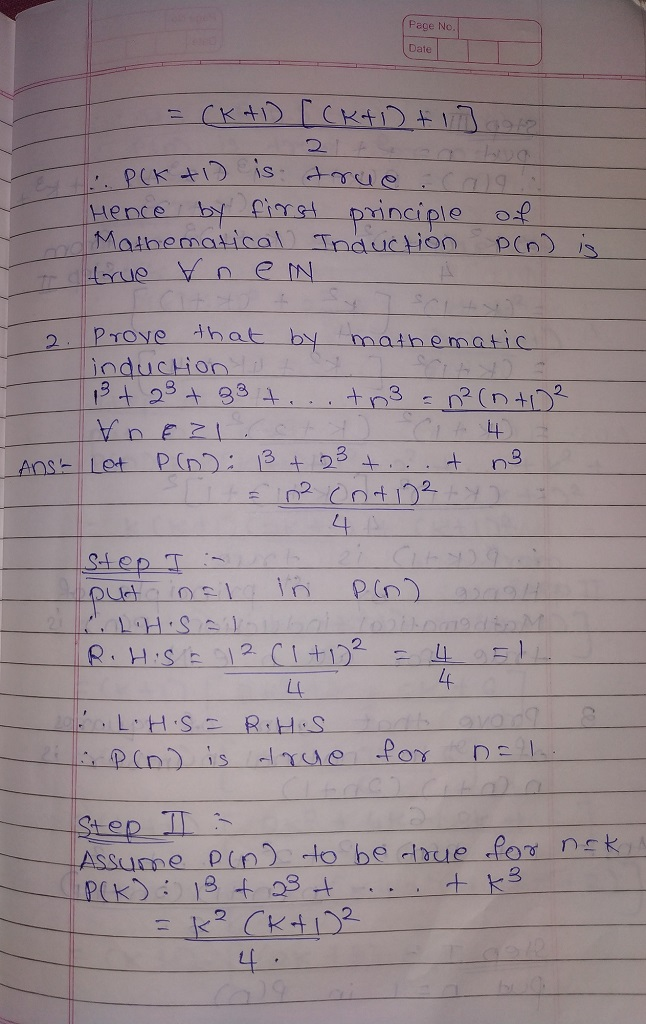 Page No.
Date
= (k+1) [(k+1)+1]
2
∴ P(k+1) is true.
Hence by first principle of
Mathematical Induction P(n) is
true ∀ n ∈ N
2. Prove that by mathematic
induction
1³ + 2³ + 3³ + ... + n³ = n²(n+1)²
4
∀ n ∈ ≥ 1.
Ans:- Let P(n): 1³ + 2³ + ... + n³
= n² (n+1)²
4
Step I :-
put n=1 in P(n)
∴ L.H.S = 1
R.H.S = 1² (1+1)² = 4 = 1
4 4
∴ L.H.S = R.H.S
∴ P(n) is true for n=1.
Step II :-
Assume P(n) to be true for n=k
P(k): 1³ + 2³ + ... + k³
= k² (k+1)²
4.